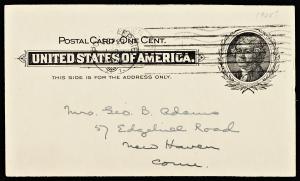 1905
POSTAL CARD, ONE CENT.
UNITED STATES OF AMERICA.
THIS SIDE IS FOR THE ADDRESS ONLY.
Mrs. Geo. B. Adams
57 Edgehill Road
New Haven
Conn.